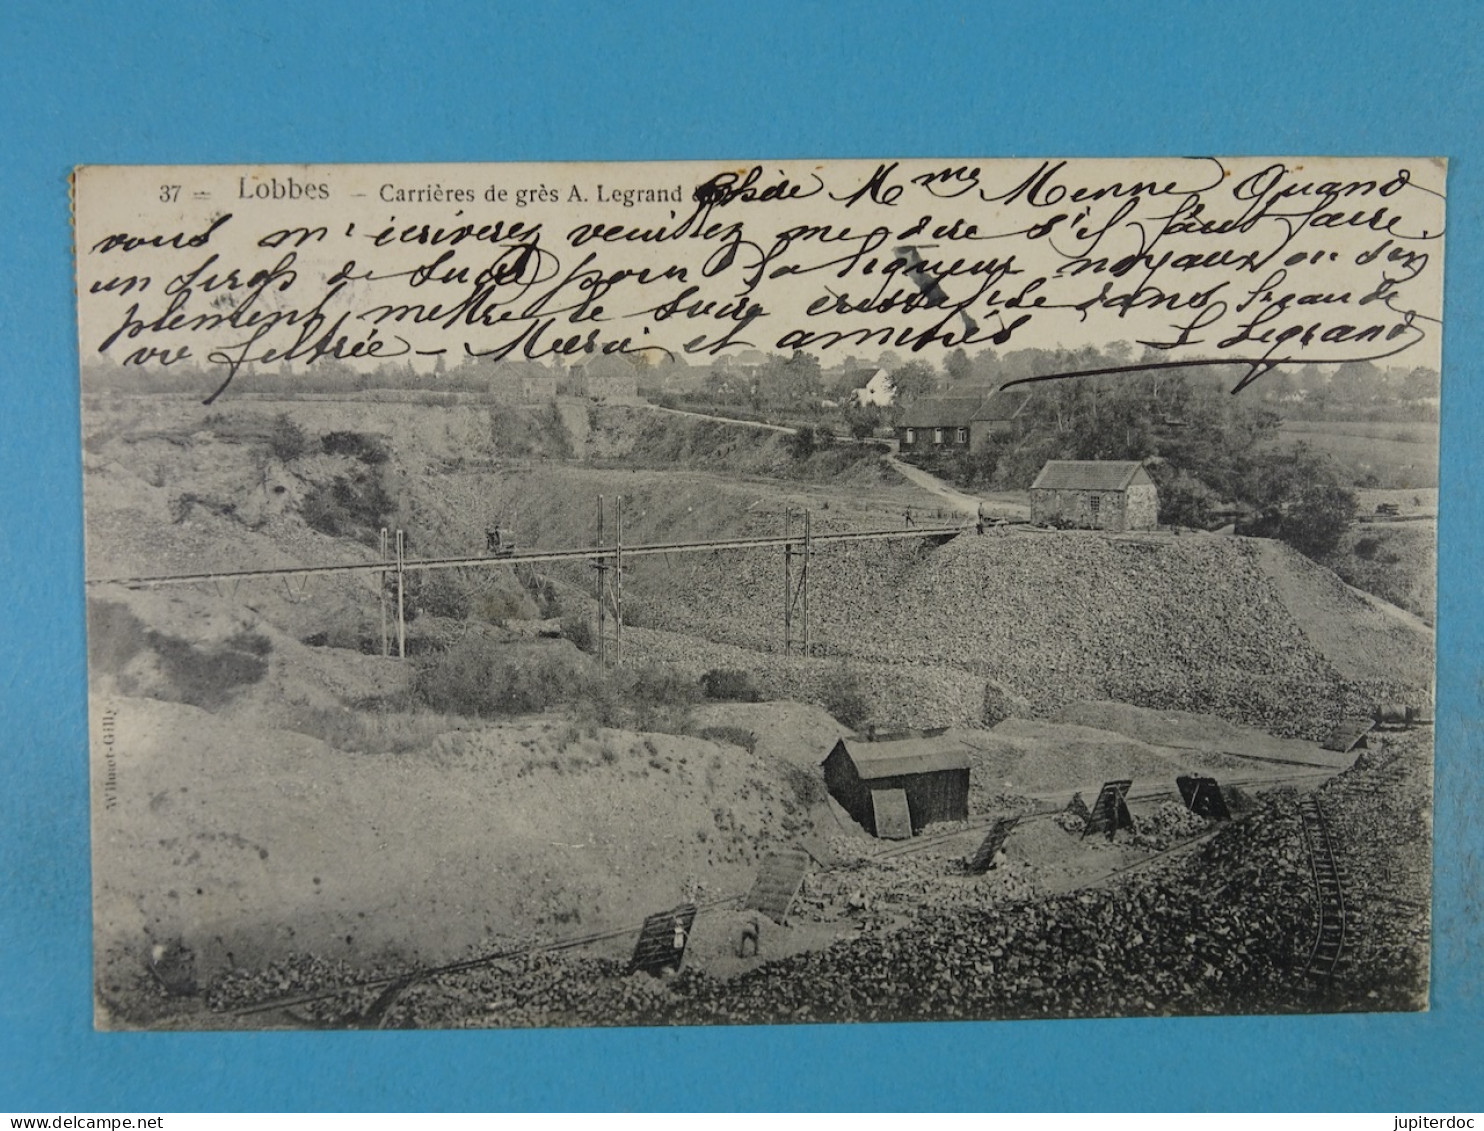 37 - Lobbes - Carrières de grès A. Legrand
Chère Mme Menne Quand
vous m'écriverez veuillez me dire s'il faut faire
un sirop de sucre pour la liqueur noyaux ou sim
plement mettre le sucre dans l'eau de
vie filtrée - Merci et amitiés L Legrand
Wilmet-Gilly
jupiterdoc